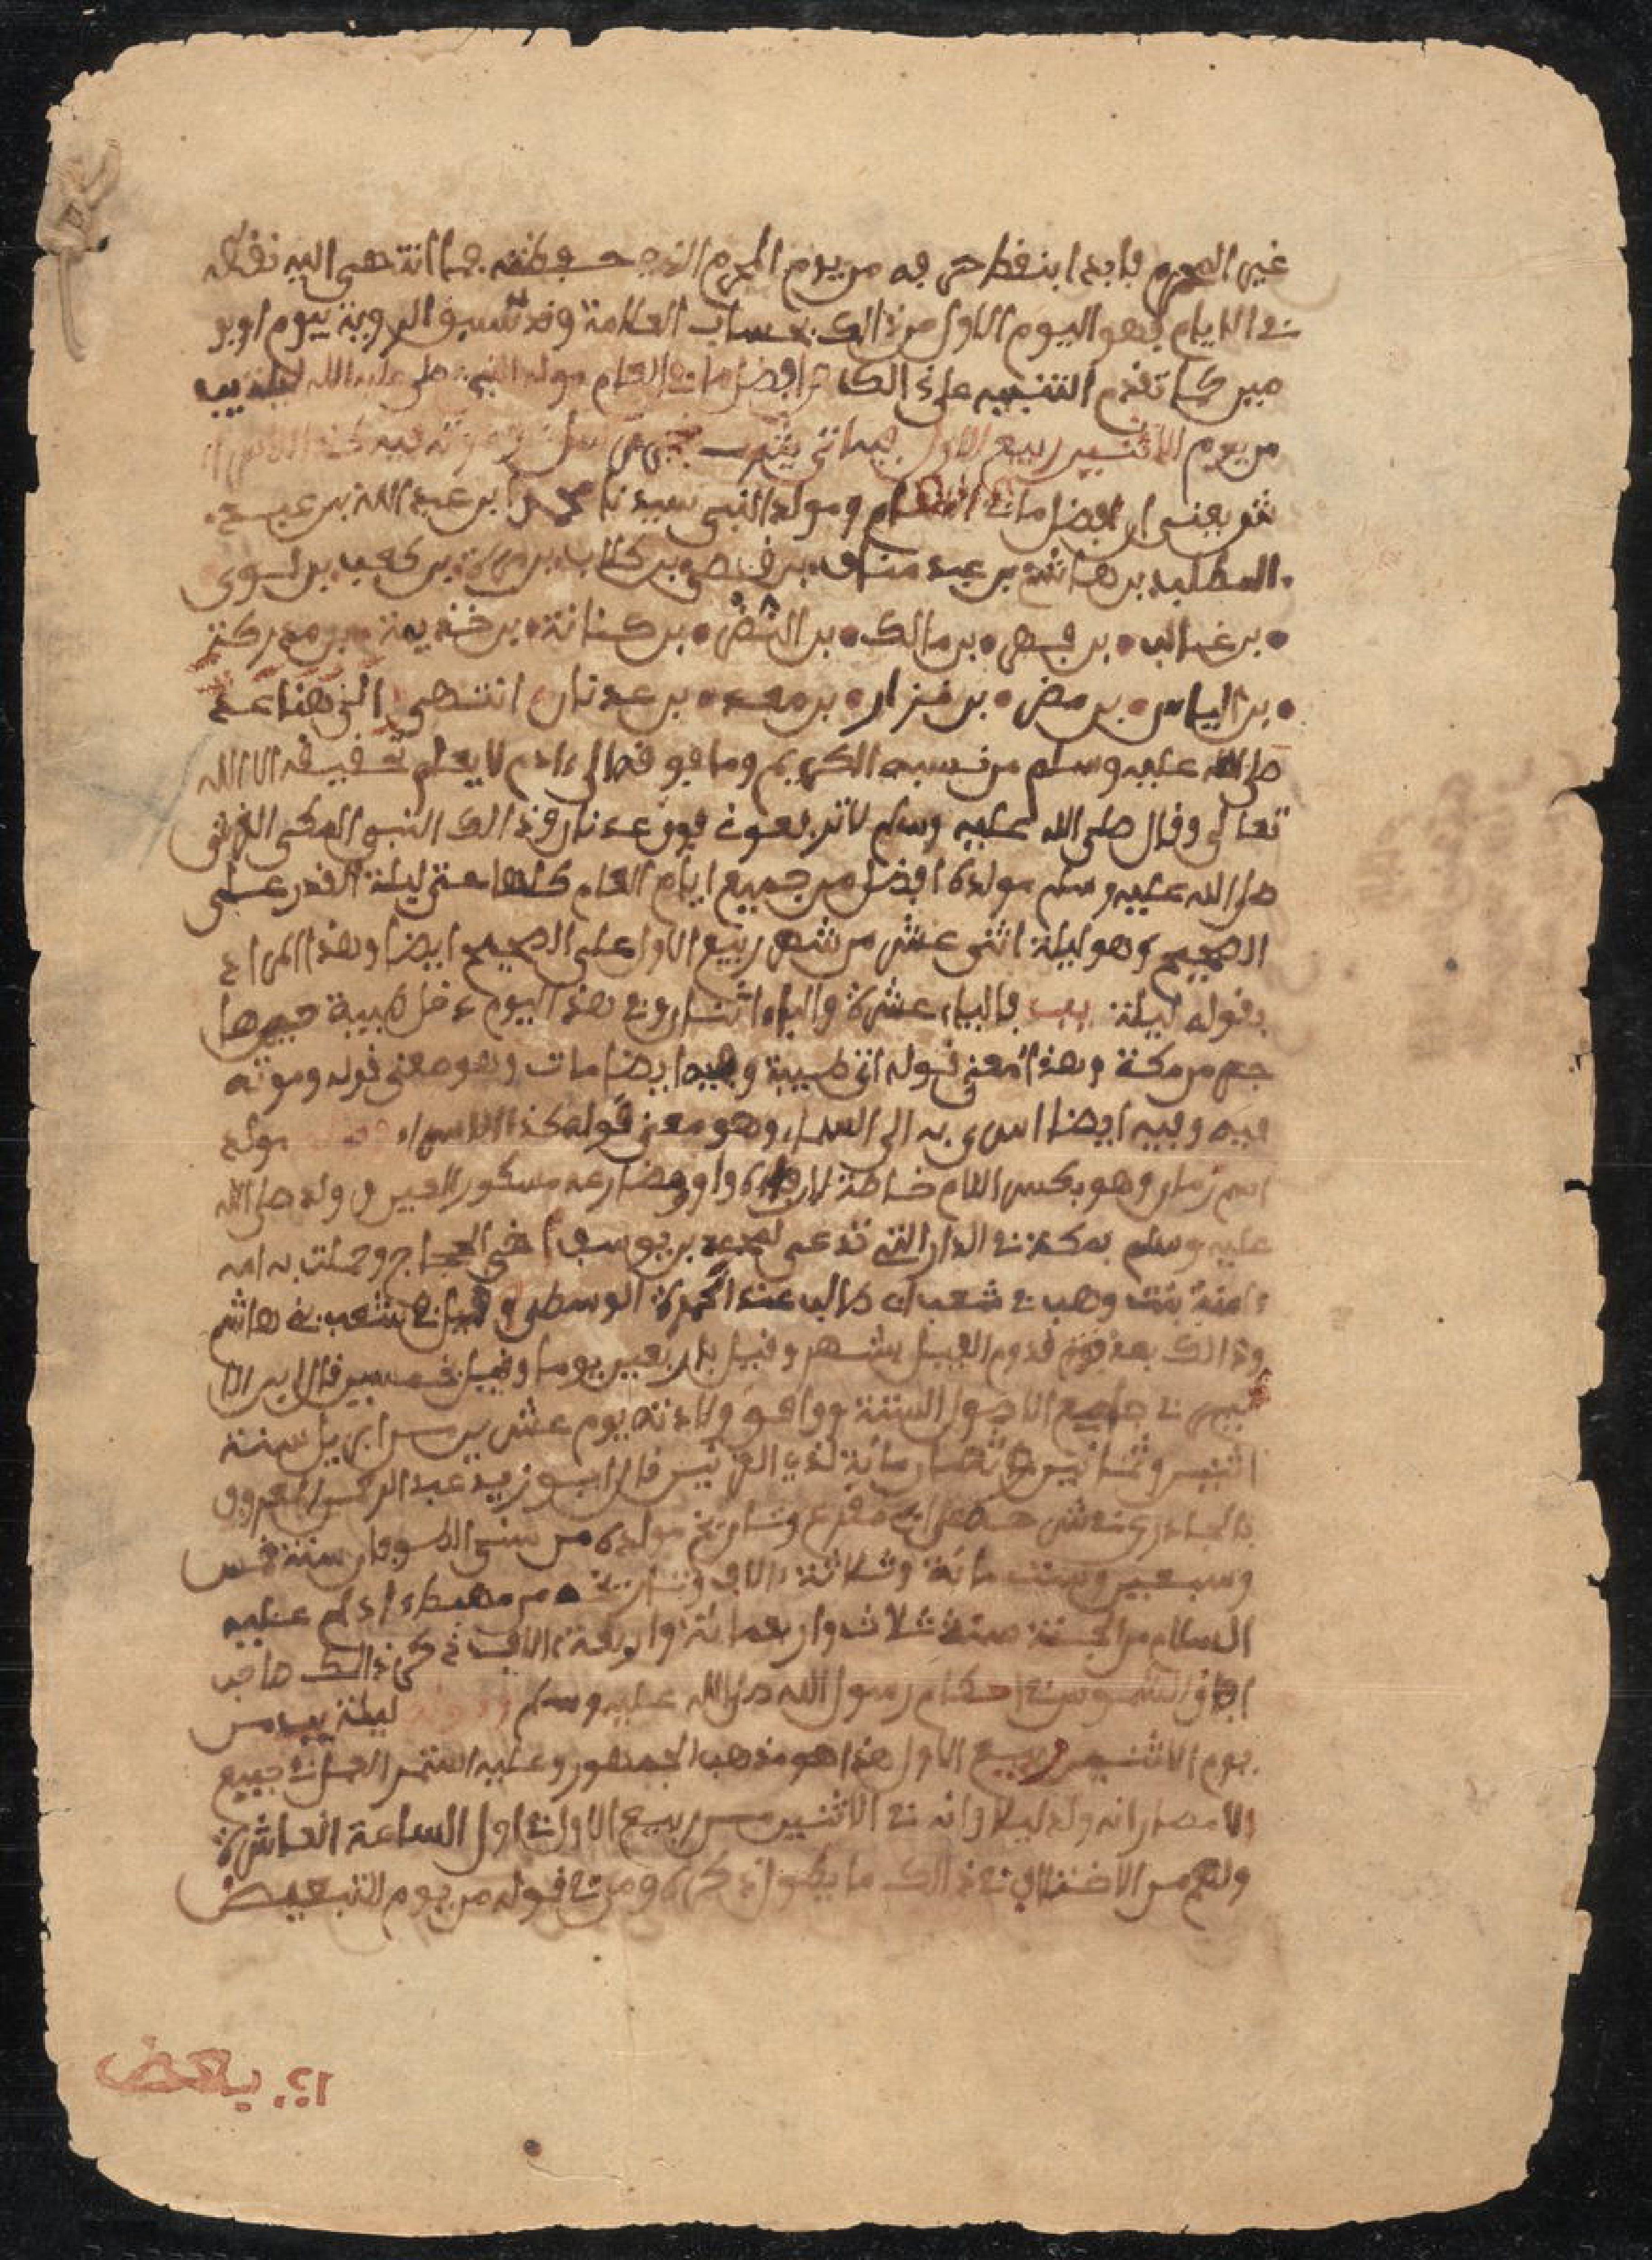 غير المحرم فابدا بنقط حرفه من يوم المحرم الذي حفظته فما انتهى اليه نقطه
في الايام فهو اليوم الاول من ذالك بحساب العلامة وقد تسبق الروية بيوم او يو
مين كما تقدم التنبيه على ذالك افضل ما في العام مولد النبي صلى عليه الله ليلة يب
من يوم الاثنين ربيع الاول فيه اتى يثرب وموته فيه كذا الاسرا
ش يعني ان افضل ما في العام ومولد النبي سيدنا محمد ابن عبد الله بن عبد
المطلب بن هاشم بن عبد مناف بن قصي بن كلاب بن مرة بن كعب بن لوي
بن غالب بن فهر بن مالك بن النضر بن كنانة بن خزيمة بن مدركة
بن الياس بن مضر بن نزار بن معد بن عدنان انتهى الى هنا عد
صلى الله عليه وسلم من نسبه الكريم وما فوقه الى ءادم لا يعلم تحقيقه الا الله
تعالى وقال صلى الله عليه وسلم لا ترفعوني فوق عدنان وذالك النبي المكي القرشي
صلى الله عليه وسلم مولده افضل من جميع ايام العام كلها حتى ليلة القدر على
الصحيح وهو ليلة اثنى عشر من شهر ربيع الاول على الصحيح ايضا وهذا المراد
بقوله ليلة يب فالياء عشرة والباء اثنان وفي هذا اليوم دخل طيبة حين ها
جر من مكة وهذا معنى قوله اتى طيبة وفيه ايضا مات وهو معنى قوله وموته
فيه وفيه ايضا اسري به الى السماء وهو معنى قوله كذا الاسراء مولد
اسم زمان وهو بكسر اللام خاصة لان فاءه واو ومضارعه مكسور العين وولد صلى الله
عليه وسلم بمكة في الدار التي تدعى لمحمد بن يوسف اخي الحجاج وحملت به امه
ءامنة بنت وهب في شعب ابي طالب عند الجمرة الوسطى وقيل في شعب بني هاشم
وذالك بعد قدوم الفيل بشهر وقيل باربعين يوما وقيل خمسين قال ابن الا
ثير في جامع الاصول الستة ووافق ولادته يوم عشرين من ابريل سنة
اثنين وثمانين وثمان مائة لذي القرنين قال ابو زيد عبد الرحمن المعروف
بالجادري في شرح مقرع وتاريخ مولده من سني الطوفان سنة خمس
وسبعين وست مائة وثلاثة ءالاف وتاريخه من مهبط ءادم عليه
السلام من الجنة سنة ثلاث واربعمائة واربعة ءالاف ذكر ذالك صاحب
اشراق الشموس في احكام رسول الله صلى الله عليه وسلم وقوله ليلة يب من
يوم الاثنين ربيع الاول هذا هو مذهب الجمهور وعليه استمر العمل في جميع
الامصار انه ولد ليلا وانه في الاثنين من ربيع الاول في اول الساعة العاشرة
ولهم من الاختلاف في ذالك ما يطول ذكره ومن في قوله من يوم للتبعيض
اي بعض